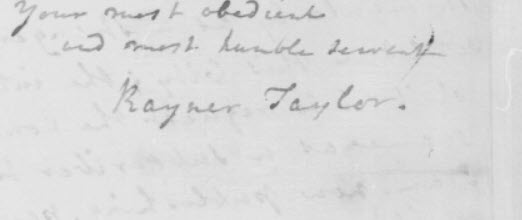 Your most obedient
and most humble servant
Rayner Taylor.